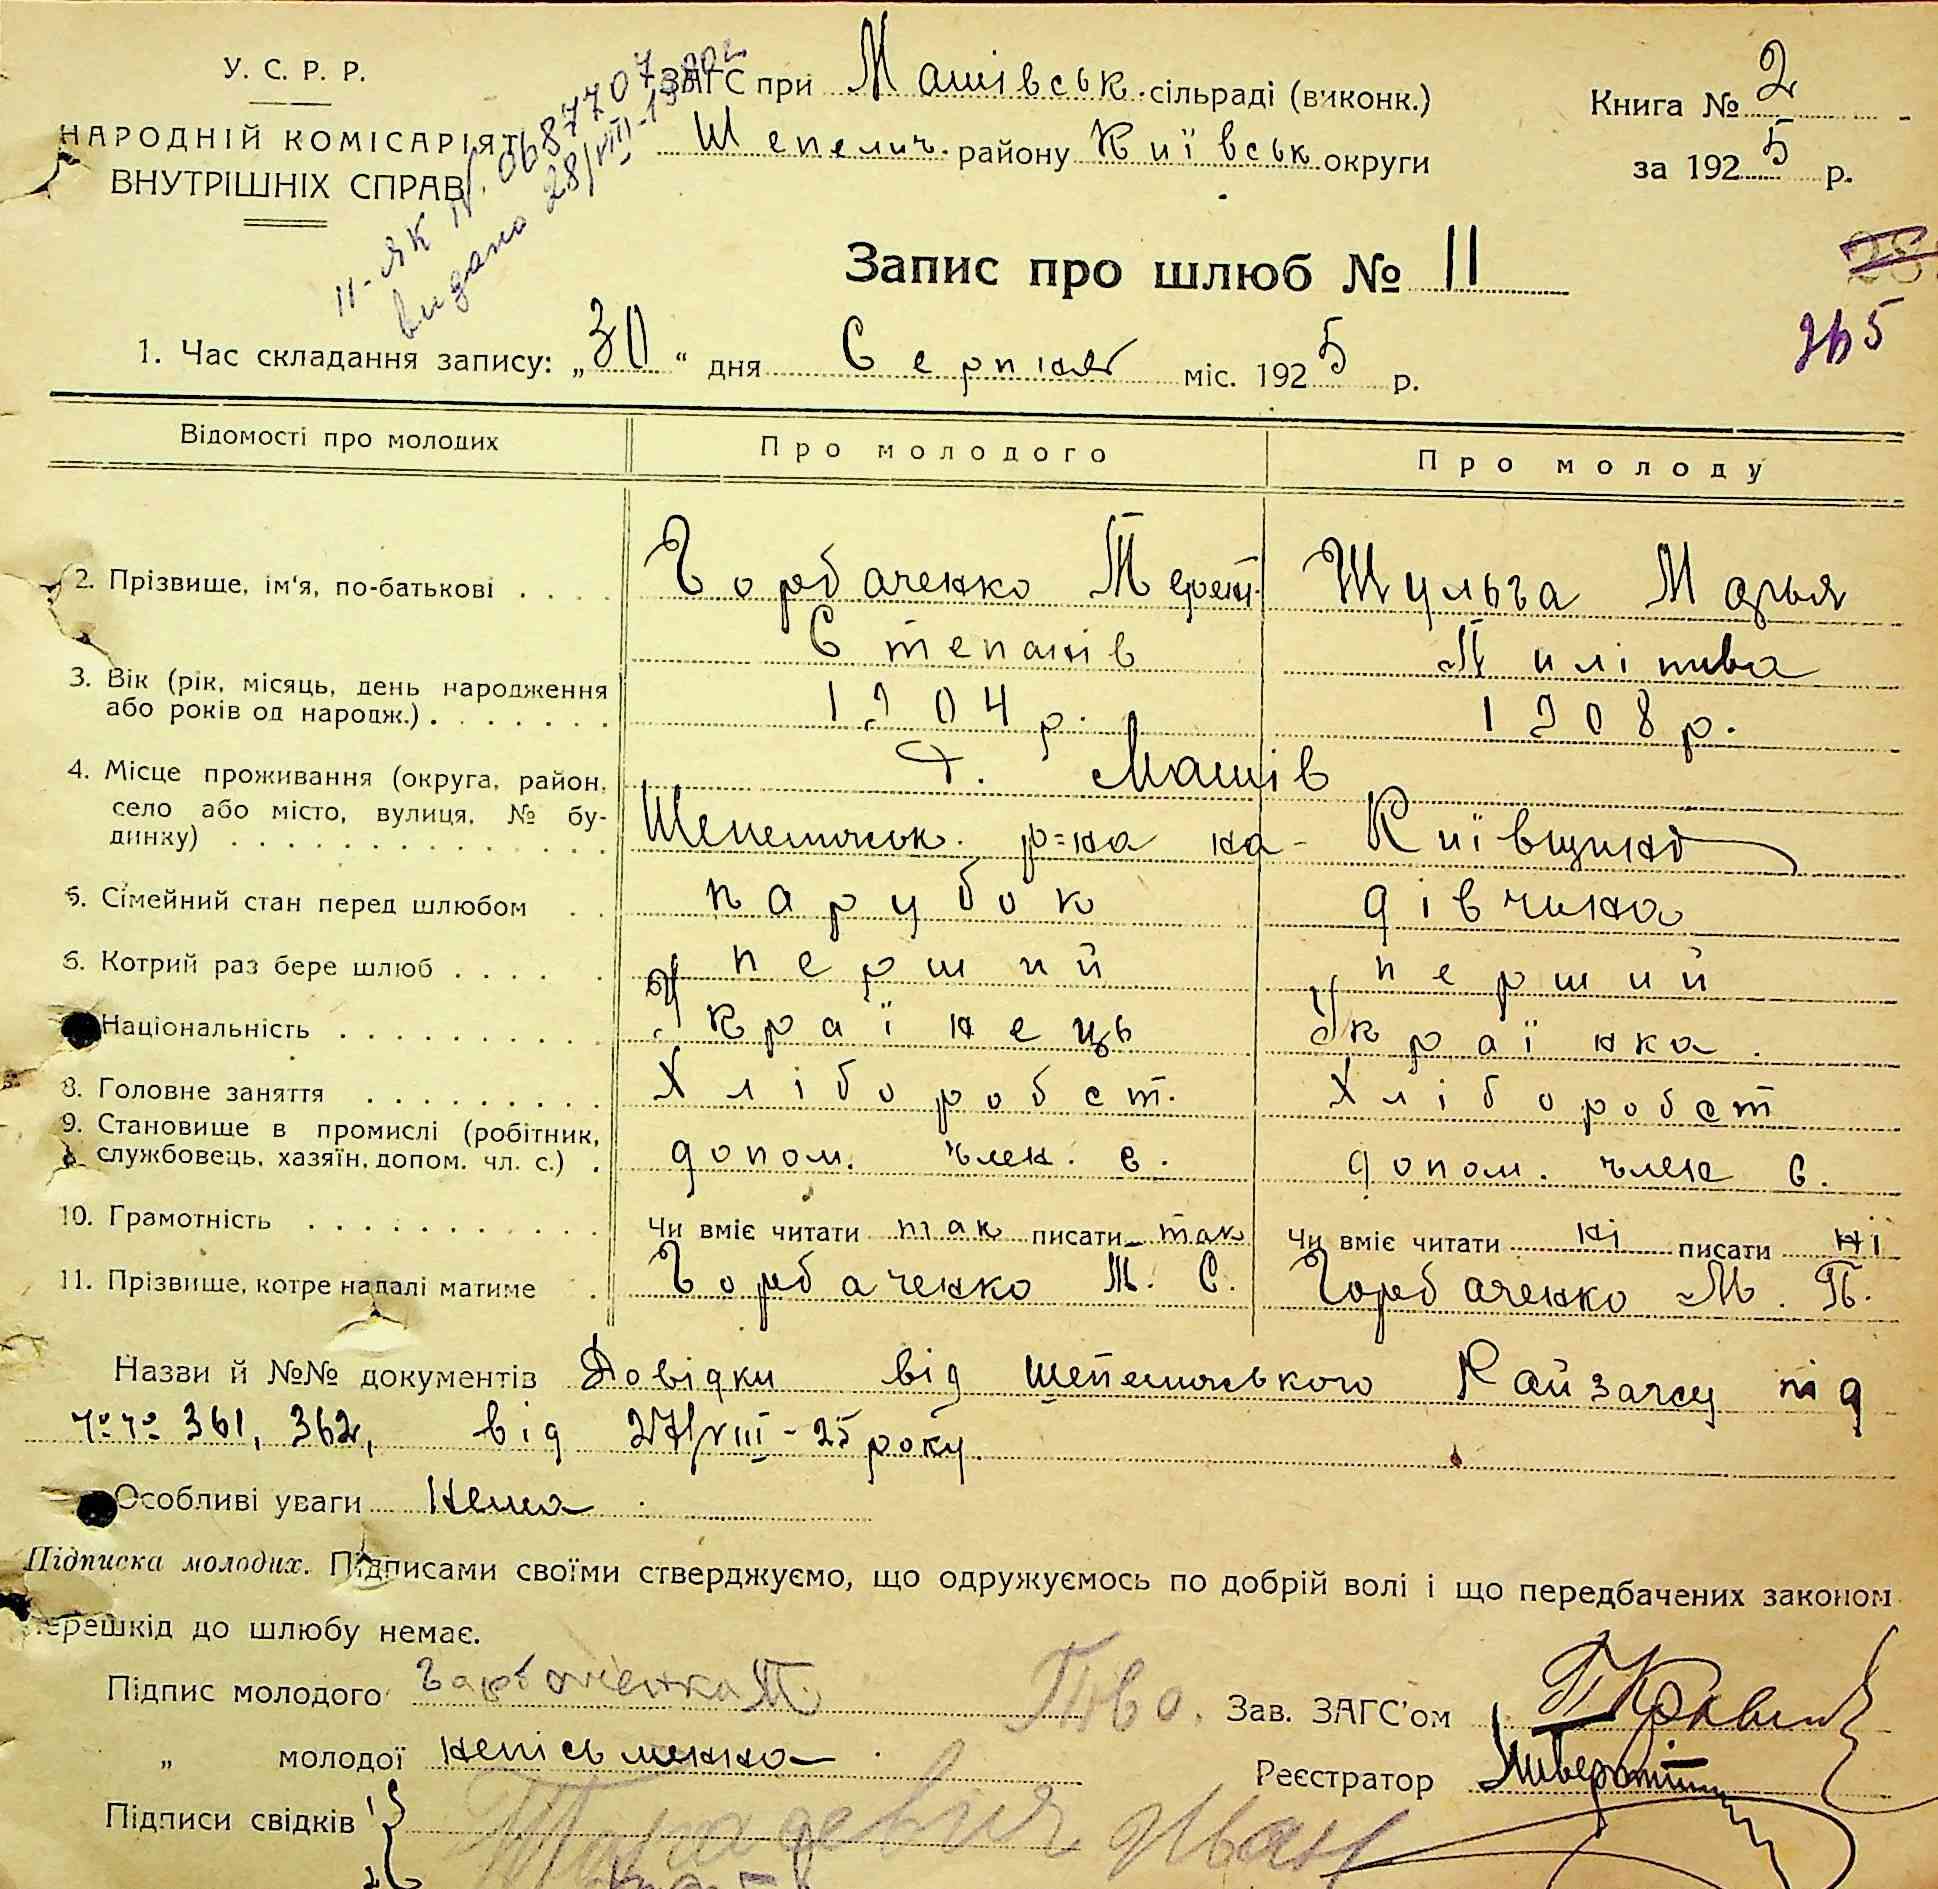 У. С. Р. Р.
НАРОДНІЙ КОМІСАРІЯТ
ВНУТРІШНІХ СПРАВ
ЗАГС при Машівськ. сільраді (виконк.)
Шепелич. району Київськ округи
Книга № 2
за 1925 р.
II-ЯК №. 068770
видано 28/VIII-
Запис про шлюб № 11
1. Час складання запису: „30“ дня Серпня міс. 1925 р.
265
Відомості про молодих
Про молодого
Про молоду
2. Прізвище, ім'я, по-батькові
Горбаченко Терент. Степанів
Шульга Марья Пиліпива
3. Вік (рік, місяць, день народження або років од народж.)
1904 р.
1908 р.
4. Місце проживання (округа, район, село або місто, вулиця, № будинку)
Машів
Шепелическ. р=на на- Київщині
5. Сімейний стан перед шлюбом
парубок
дівчина
6. Котрий раз бере шлюб
перший
перший
Національність
Українець
Українка.
8. Головне заняття
Хліборобст.
Хліборобст
9. Становище в промислі (робітник, службовець, хазяїн, допом. чл. с.)
допом. член. с.
допом. член с.
10. Грамотність
Чи вміє читати так писати так
Чи вміє читати ні писати ні
11. Прізвище, котре надалі матиме
Горбаченко Т. С.
Горбаченко М. П.
Назви й №№ документів Довідки від Шепелицького Райзагсу під
№№ 361, 362, від 27/VIII-25 року.
Особливі уваги Нема
Підписка молодих. Підписами своїми стверджуємо, що одружуємось по добрій волі і що передбачених законом
перешкід до шлюбу немає.
Підпис молодого Горбаченко Т.
Зав. ЗАГС'ом
„ молодої неписьменна
Реєстратор
Підписи свідків 1 Тарасевич Иван
2